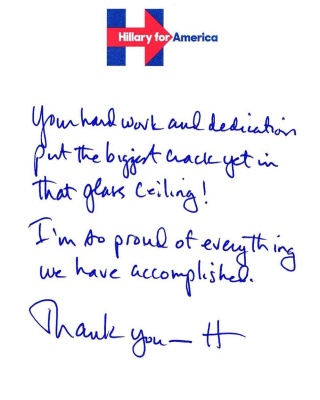 Hillary for America
Your hard work and dedication
put the biggest crack yet in
that glass ceiling!
I'm so proud of everything
we have accomplished.
Thank you — H